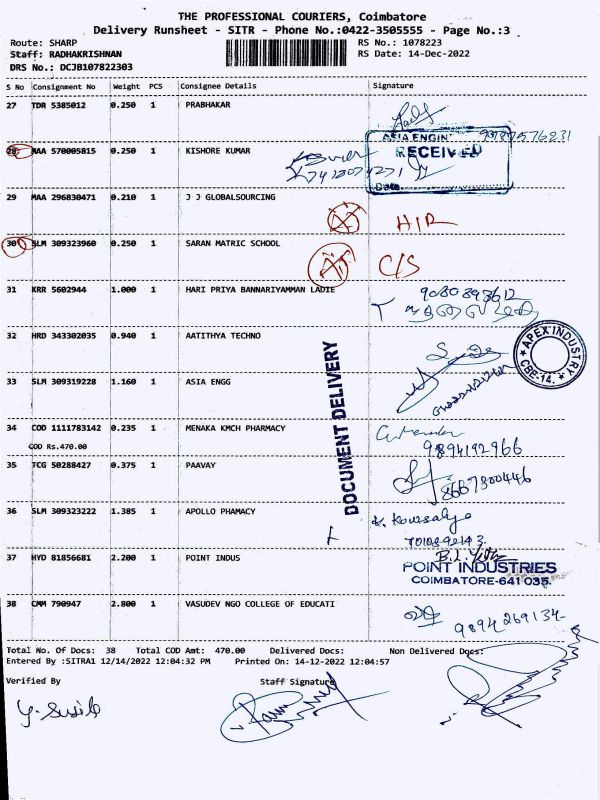 THE PROFESSIONAL COURIERS, Coimbatore
Delivery Runsheet - SITR - Phone No.:0422-3505555 - Page No.:3
Route: SHARP
RS No.: 1078223
Staff: RADHAKRISHNAN
RS Date: 14-Dec-2022
DRS No.: DCJB107822303
S No Consignment No Weight PCS Consignee Details Signature
27 TDR 5385012 0.250 1 PRABHAKAR
ASIA ENGIN
28 MAA 570005815 0.250 1 KISHORE KUMAR
RECEIVED
Date
29 MAA 296830471 0.210 1 J J GLOBALSOURCING
H/R
30 SLM 309323960 0.250 1 SARAN MATRIC SCHOOL
C/S
31 KRR 5602944 1.000 1 HARI PRIYA BANNARIYAMMAN LADIE
32 HRD 343302035 0.940 1 AATITHYA TECHNO
APEX INDUSTRY
CBE-14.
33 SLM 309319228 1.160 1 ASIA ENGG
DOCUMENT DELIVERY
34 COD 1111783142 0.235 1 MENAKA KMCH PHARMACY
COD Rs.470.00
9894192966
35 TCG 50288427 0.375 1 PAAVAY
8667300446
36 SLM 309323222 1.385 1 APOLLO PHAMACY
K. Kowsalya
37 HYD 81856681 2.200 1 POINT INDUS
POINT INDUSTRIES
COIMBATORE-641 035.
38 CMM 790947 2.800 1 VASUDEV NGO COLLEGE OF EDUCATI
9894269134
Total No. Of Docs: 38 Total COD Amt: 470.00 Delivered Docs: Non Delivered Docs:
Entered By :SITRA1 12/14/2022 12:04:32 PM Printed On: 14-12-2022 12:04:57
Verified By Staff Signature